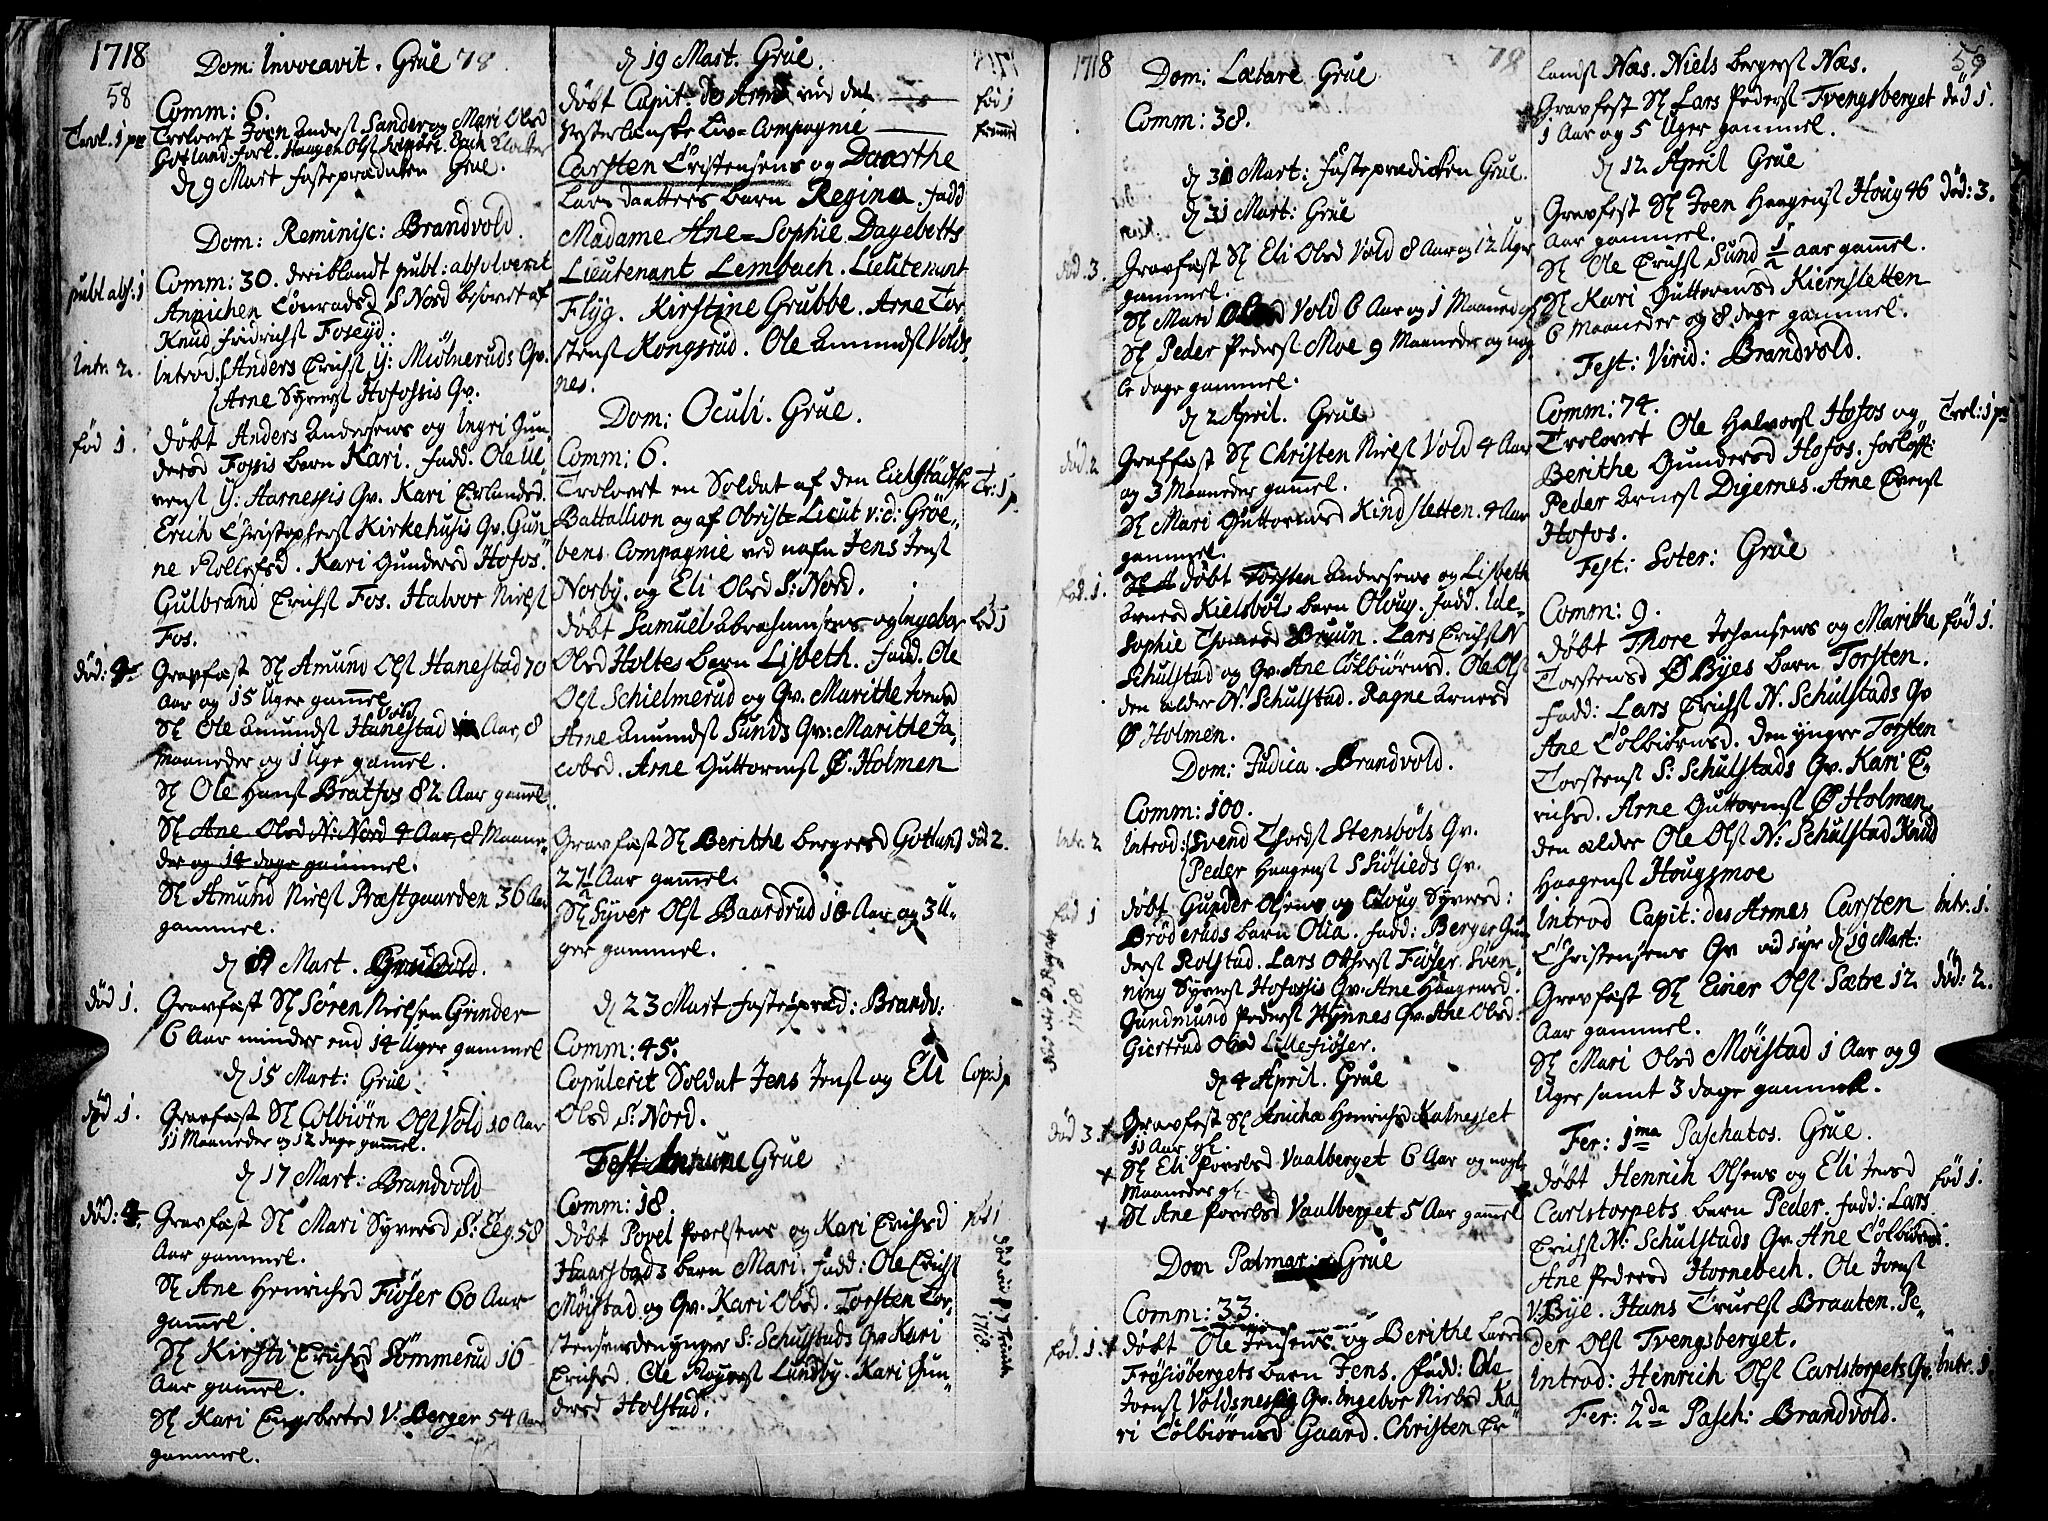 1718
58
Dom: Invocavit. Grue 78
Comm: 6.
Trol. 1 pr
Trolovet Joen Anderſ Sander og Mari Olsd
Gotland. forl. Haagen Olſ
d 9 Mart fastepræduken Grue.
Dom: Reminisc: Brandvold.
publ abs: 1
Comm: 30. deriblandt publ: absolverit
Annichen Conradsd S Nord besovet af
Knud Fridrichſ Foseyd.
Intr. 2.
Introd. Anders Erichſ Y: Miölneruds Qv.
Arne Syverſ Hofossis Qv.
fød 1.
döbt Anders Andersens og Ingri Gun
dersd Fossis barn Kari. fadd. Ole
venſ Y: Harnessis Qv. Kari Erlandsd.
Erich Christopherſ Kirkehusis Qv. Gun
ne Rollefsd. Kari Gundersd Hofos.
Gulbrand Erichſ Fos. Halvor Nielſ
Fos.
død:
Gravfæst Sl Amund Olſ Hanestad 70
Aar og 15 Uger gammel
Sl Ole Amundſ Hanestad Aar, 8
Maaneder og 1 Uge gamel.
Sl Ole Hanſ Bratfos 82 Aar gamel
Sl Ane Olsd N: Nord 4 Aar, 8 Maane-
der og 14 dage gammel.
Sl Amund Nielſ Præstgaarden 36 Aar
gammel.
d Mart.
død 1.
Gravfæst Sl Sören Nielsen Grinder
6 Aar minder end 14 Uger gammel
d 15 Mart: Grue.
død 1.
Gravfæst Sl Colbiörn Olſ Vold 10 Aar
11 Maaneder og 12 dage gammel.
d 17 Mart: Brandvold
død: 4
Gravfæst Sl Mari Syversd S: Eeg 58
Aar gammel.
Sl Ane Henrichsd Fiöser 60 Aar
gammel.
Sl Kirsti Erichsd Sömmerud 16
Aar gammel.
Sl Kari Engebretsd V: Berger 54 Aar
gammel.
d 19 Mart. Grue.
1718
döbt Capit: de Arms ved det
fød 1
Vesterlenske Liv=Compagnie
fremmed
Carsten Cristensens og Daarthe
Lars daatters barn Regina. fadd
Madame Ane=Sophie Dagebotts
Lieutenant Lembach. Lieutenant
Flyg. Kirstine Grubbe. Arne Tor-
stenſ Kongsrud. Ole Amundſ Volds-
nes.
Dom: Oculi. Grue.
Comm: 6.
Trolovet en Soldat af den Eichstädtſ
Tr: 1 p.
Battallion og af Obrist=Lieut v: d: Gröe-
bens Compagnie ved nafn Jens Jenſ
Norby. og Eli Olsd S: Nord.
döbt Samuel Abrahamsens og Ingebor
fød 1
Olsd Holtes barn Lisbeth. fadd. Ole
Olſ Schielmerud og Qv. Marithe Jonsd
Arne Amundſ Sunds Qv: Marithe Ja-
cobsd. Arne Guttormſ Ø. Holmen
Gravfæst Sl Berithe Bergersd Gotland
død 2.
27 Aar gammel.
Sl Syver Olſ Baardrud 10 Aar og 3 U-
ger gammel.
d 23 Mart fastepræd: Brandv:
Comm: 45.
Copulerit Soldat Jens Jenſ og Eli
Cop: 1 p
Olsd S: Nord.
Fest: Grue
Comm: 18.
döbt Povel Povelsens og Kari Erichsd
fød 1
Haarstads barn Mari. fadd: Ole Erichſ
Möistad og Qv. Kari Olsd. Torsten Tor-
stensens den ynger S: Schulstads Qv Kari
Erichsd. Ole Lundby. Kari Gun-
dersd Holstad.
1718.
1718
78
Dom: Lætare Grue
Comm: 38.
d 30 Mart: fastepredicken Grue.
d 31 Mart: Grue
død. 3.
Gravfæst Sl Eli Olsd Vold 8 Aar og 12 Uger
gammel.
Sl Mari Olsd Vold 6 Aar og 1 Maaned gl
Sl Peder Pederſ Moe 9 Maaneder og nog-
le dage gammel.
d 2 April. Grue
død. 2
Graffæst Sl Christen Nielſ Vold 4 Aar
og 3 Maaneder gammel.
Sl Mari Guttormsd Kindsletten. 4 Aar
gammel.
fød. 1.
döbt Torsten Andersens og Lisbeth
Arnesd Kielsböls barn Oloug. fadd. Ide-
Sophie Thomesd Bruun. Lars Erichſ N
Schulstad og Qv. Ane Colbiörnsd. Ole Olſ
den elder N. Schulstad. Ragne Arnesd
Ø Holmen.
Dom: Judica. Brandvold.
Comm: 100.
Intr. 2
Introd: Svend Thordſ Stensböls Qv.
Peder Haagenſ Skiölieds Qv.
fød 1
döbt Gunder Olsens og Oloug Syversd:
Bröderuds barn Olia. fadd: Berger Gun
derſ Rolstad. Lars Otherſ Fiöser. Sven-
ning Syverſ Hofossis Qv. Ane Haagensd.
Gundmund Pederſ Hynnes Qv. Ane Olsd.
Giertrud Olsd Lille fiöser.
1718.
d 4 April. Grue
død 3.
Gravfæst Sl Anicha Henrichsd Kalnesset
11 Aar gl.
Sl Eli Povelsd Vaalberget 6 Aar og nogle
Maaneder gl.
Sl Ane Povelsd Vaalberget 5 Aar gammel
Dom Palmar: Grue
Comm: 33.
fød. 1.
döbt Ole Jensens og Berithe Larsd
Frösiöbergets barn Jens. fadd: Ole
Joenſ Voldsnessis Qv. Ingebor Nielsd Ka
ri Colbiörnsd Gaard. Christen Er-
59
landſ Næs. Niels Bergerſ Næs.
Gravfest Sl Lars Pederſ Tvengsberget
død 1.
1 Aar og 5 Uger gammel.
d 12 April Grue
Gravfest Sl Joen Haagenſ Houg 46
død: 3.
Aar gammel.
Sl Ole Erichſ Sund ½ aar gammel.
Sl Kari Guttormsd Kiernsletten
6 Maaneder og 8 dage gammel.
Fest: Virid: Brandvold.
Comm: 74.
Trolovet Ole Halvorſ Hofos og
Trol: 1 pr
Berithe Gundersd Hofos. forlöft:
Peder Arneſ Digernes. Arne Evenſ
Hofos.
Fest: Soter: Grue
Comm: 9.
döbt Thore Johansens og Marithe
fød 1.
Torstensd Ø Byes barn Torsten.
fadd: Lars Erichſ N. Schulstads Qv
Ane Colbiörnsd. den ynger Torsten
Torstenſ S: Schulstads Qv. Kari E-
richsd. Arne Guttormſ Ø Holmen
den elder Ole Olſ N: Schulstad Knud
Haagenſ Hougsmoe
Introd Capit: des Armes Carsten
Intr. 1.
Christensens Qv d 19 Mart:
Gravfæst Sl Einer Olſ Sætre 12
død: 2.
Aar gammel.
Sl Mari Olsd Möistad 1 Aar og 9
Uger samt 3 dage gammel.
Fer: 1ma Paschatos. Grue.
döbt Henrich Olsens og Eli Jensd
fød 1.
Carlstorpets barn Peder. fadd: Lars
Erichſ N: Schulstads Qv Ane Colbiörnsd.
Ane Pedersd Hornebech. Ole Joenſ
V: Bye. Hans Truelſ Braaten. Pe-
der Olſ Tvengsberget.
Introd: Henrich Olſ Carlstorpets Qv.
Intr. 1
Fer: 2da Pasch: Brandvold.